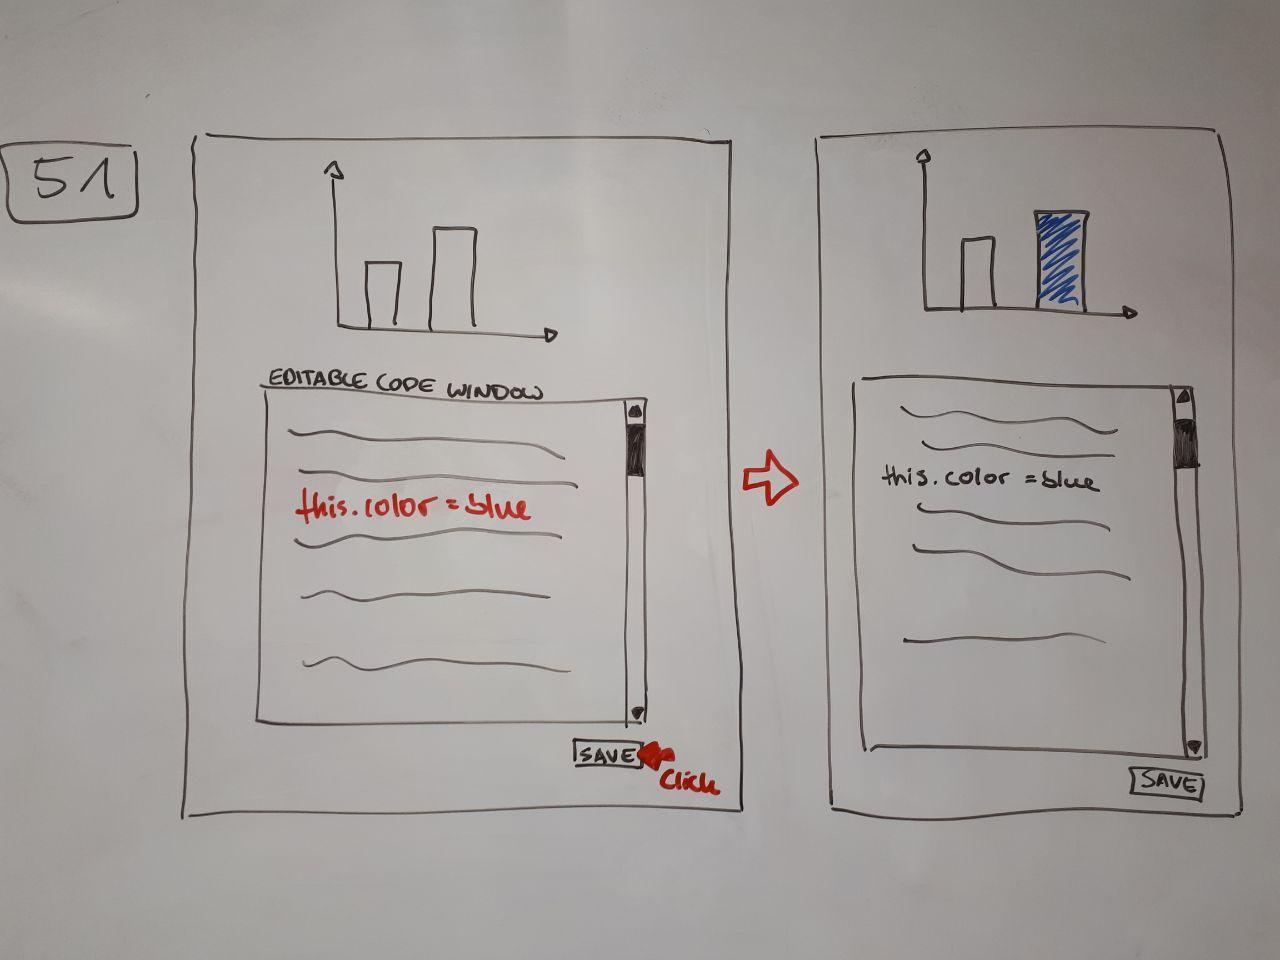 51
EDITABLE CODE WINDOW
this.color = blue
SAVE
Click
this.color = blue
SAVE